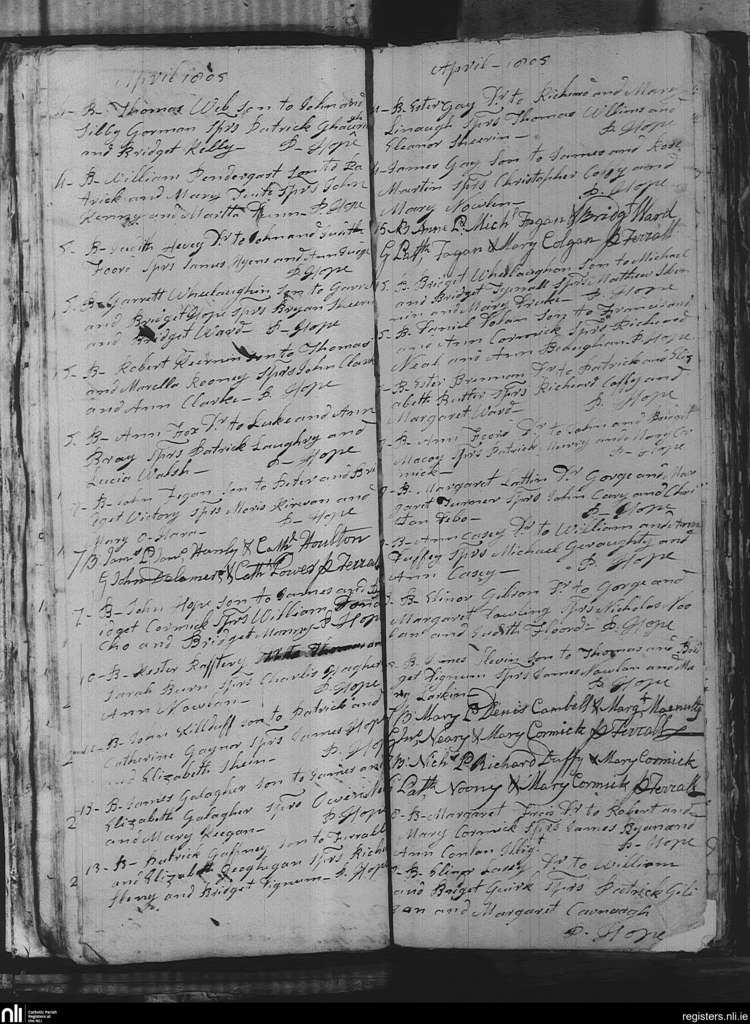 April 1805
B- Thomas Web son to John and
Sibby Gorman Sprs Patrick
and Bridget Kelly- P- Hope
4- B- William Pendergast son to Pa
trick and Mary Sprs John
Kenny and Martha P- Hope
5- B- Judith Hevey Dr to John and Judith
Foord Sprs James Myers and Ann
P- Hope
5- B- Garrett Wheelaughin son to Garrett
and Bridget Hope Sprs Bryan
and Bridget Ward P- Hope
5- B- Robert Keernin son to Thomas
and Marella Rooney Sprs John Clark
and Ann Clarke- P- Hope
5- B- Ann Fox Dr to Luke and Ann
Bray Sprs Patrick Laughry and
Lucia Walsh- P- Hope
7- B- John Fegan son to Peter and Bri
dget Victory Sprs Maris Kirwan and
Mary O-Hara- P- Hope
7 B Jams P Jams Hanly & Cathr Houlton
G John Delamer & Cathr Power P Ferrall
7- B- John Hope son to James and Br
idget Cormick Sprs William
and Bridget P- Hope
10- B- Hester Raffterry Thomas and
Sarah Burn Sprs Charlis Gallagher
Ann Nowlan- P- Hope
B- John Killduff son to Patrick and
Catherine Gaynor Sprs James
and Elizabeth P- Hope
13- B- James Galagher son to James and
Elizabeth Galagher Sprs Owen
and Mary Keegan- P- Hope
13- B- Patrick Gaffney son to Ferrall
and Elizabeth Geoghegan Sprs Richd
Henry and Bridget Dignum- P- Hope
April- 1805
B- Ester Gay Dr to Richard and Mary
Linaugh Sprs Thomas Willims and
Eleanor Sheerin- P- Hope
James Gay son to James and Rose
Martin Sprs Christopher Coffy and
Mary Nowlan- P- Hope
B Anne P Michl Fagan & Bridgt Ward
G Patk Fagan & Mary Colgan P Ferrall
B- Bridget Wheelaughan son to Michael
and Bridget Sprs Matthew
and Mary P- Hope
B- Daniel Dolan son to Francis and
Ann Cormick Sprs Richard
Neal and Ann P- Hope
B- Ester Brennan Dr to Patrick and Eliz
abeth Butler Sprs Richard Coffy and
Margaret Ward- P- Hope
B- Ann Foord Dr to John and Bridget
Macoy Sprs Patrick Murry and Mary Cor
mick- P- Hope
B- Margaret Lattin Dr Gorge and Mar
garet Turner Sprs John Cary and Chris
tian P- Hope
B- Ann Casey Dr to William and Ann
Duffey Sprs Michael Geraughty and
Ann Casey- P- Hope
B- Elinor Gilson Dr to Gorge and
Margaret Sprs Nicholas Noo
nan and Judith Floord- P- Hope
B- James Slevin son to Thomas and Brid
get Dignum Sprs James Nowlan and Ma
ry Larkin- P- Hope
B Mary P Denis Cambell & Margt
Jms Neary & Mary Cormick P Ferrall
B Nichs P Richard Duffy & Mary Cormick
G Patk Noony & Mary Cormick P Ferrall
B- Margaret Foord Dr to Robert and
Mary Cormick Sprs James Byrn and
Ann Conlan P- Hope
B- Elinor Casey Dr to William
and Bridget Quirk Sprs Patrick Gili
gan and Margaret Cavnaugh
P- Hope
nli
Catholic Parish
Registers at
the NLI
registers.nli.ie